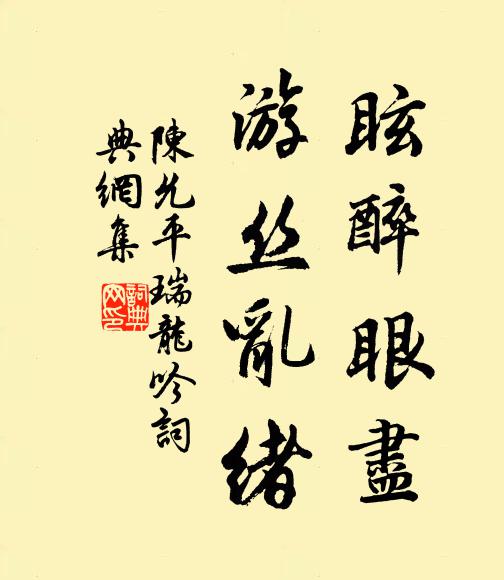 眩醉眼盡
游丝亂緒
陳允平瑞龍吟詞
典網集
詞典网印